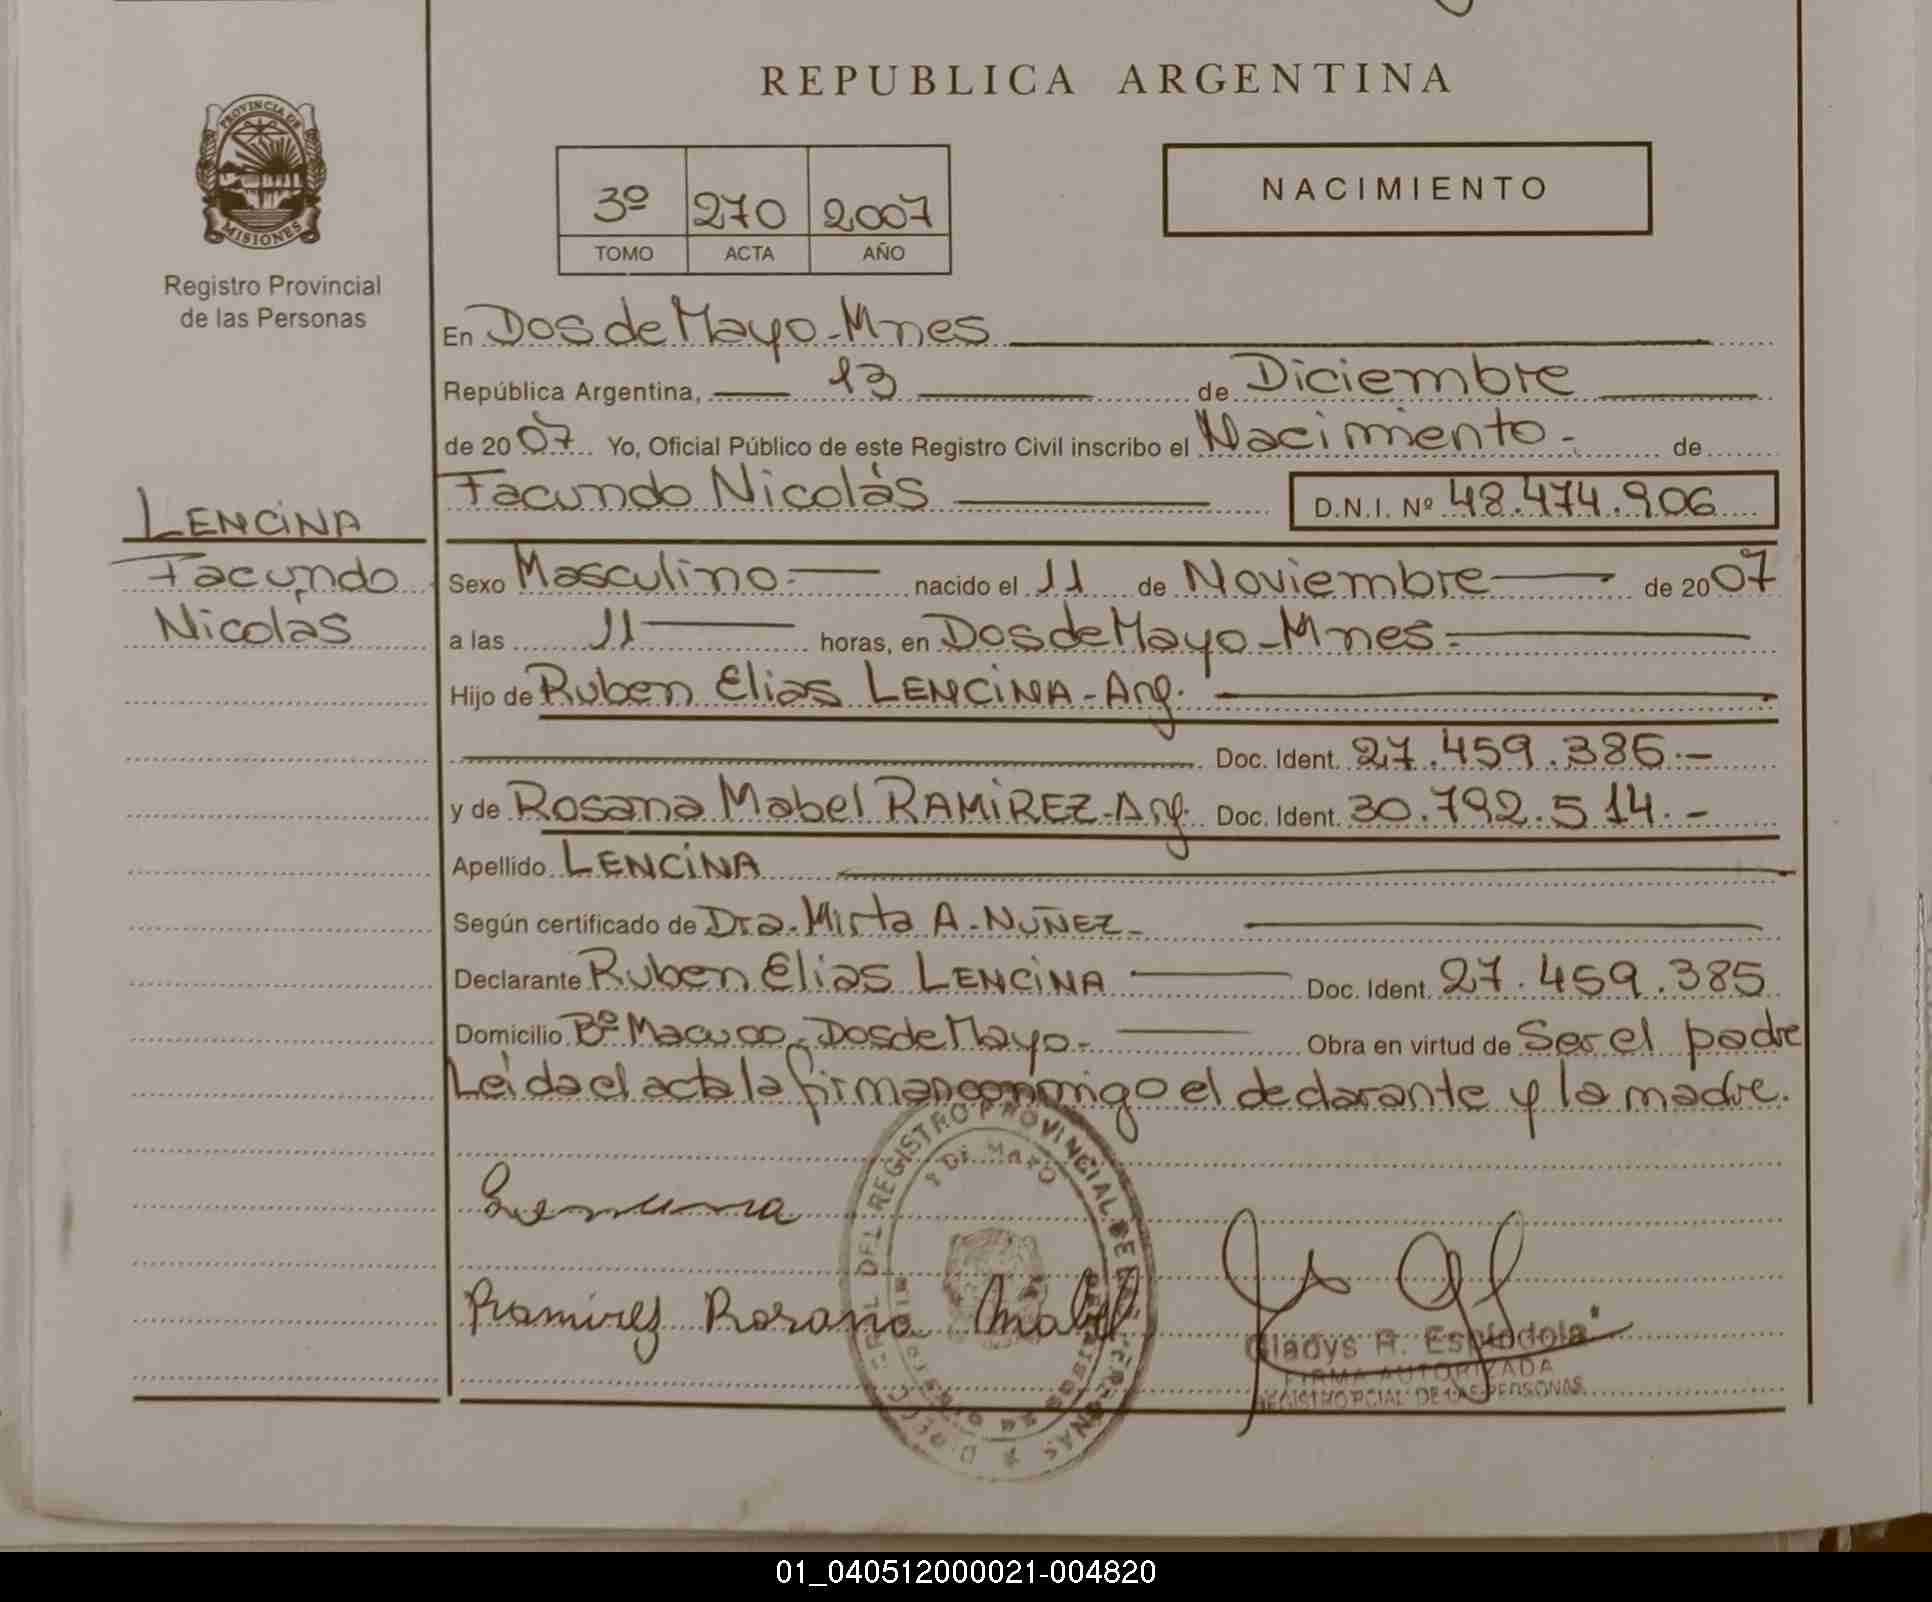 REPUBLICA ARGENTINA
PROVINCIA DE
MISIONES
Registro Provincial
de las Personas
3º 270 2007
TOMO ACTA AÑO
NACIMIENTO
En Dos de Mayo-Mnes
República Argentina, 13 de Diciembre
de 2007 Yo, Oficial Público de este Registro Civil inscribo el Nacimiento - de
Facundo Nicolás D.N.I. Nº 48.474.906
LENCINA
Facundo
Nicolás
Sexo Masculino.- nacido el 11 de Noviembre de 2007
a las 11 horas, en Dos de Mayo-Mnes.-
Hijo de Ruben Elias LENCINA-Arg.
Doc. Ident. 27.459.385.-
y de Rosana Mabel RAMIREZ-Arg. Doc. Ident. 30.792.514.-
Apellido LENCINA
Según certificado de Dra. Mirta A. NUÑEZ-
Declarante Ruben Elias LENCINA Doc. Ident. 27.459.385
Domicilio Bº Macuco-Dos de Mayo.- Obra en virtud de Ser el padre
Leída el acta la firman conmigo el declarante y la madre.
DEL REGISTRO PROVINCIAL DE
DE MAYO
Lencina
Ramirez Rosana Mabel
Gladys R. Espíndola
FIRMA AUTORIZADA
REGISTRO PCIAL DE LAS PERSONAS
01_040512000021-004820